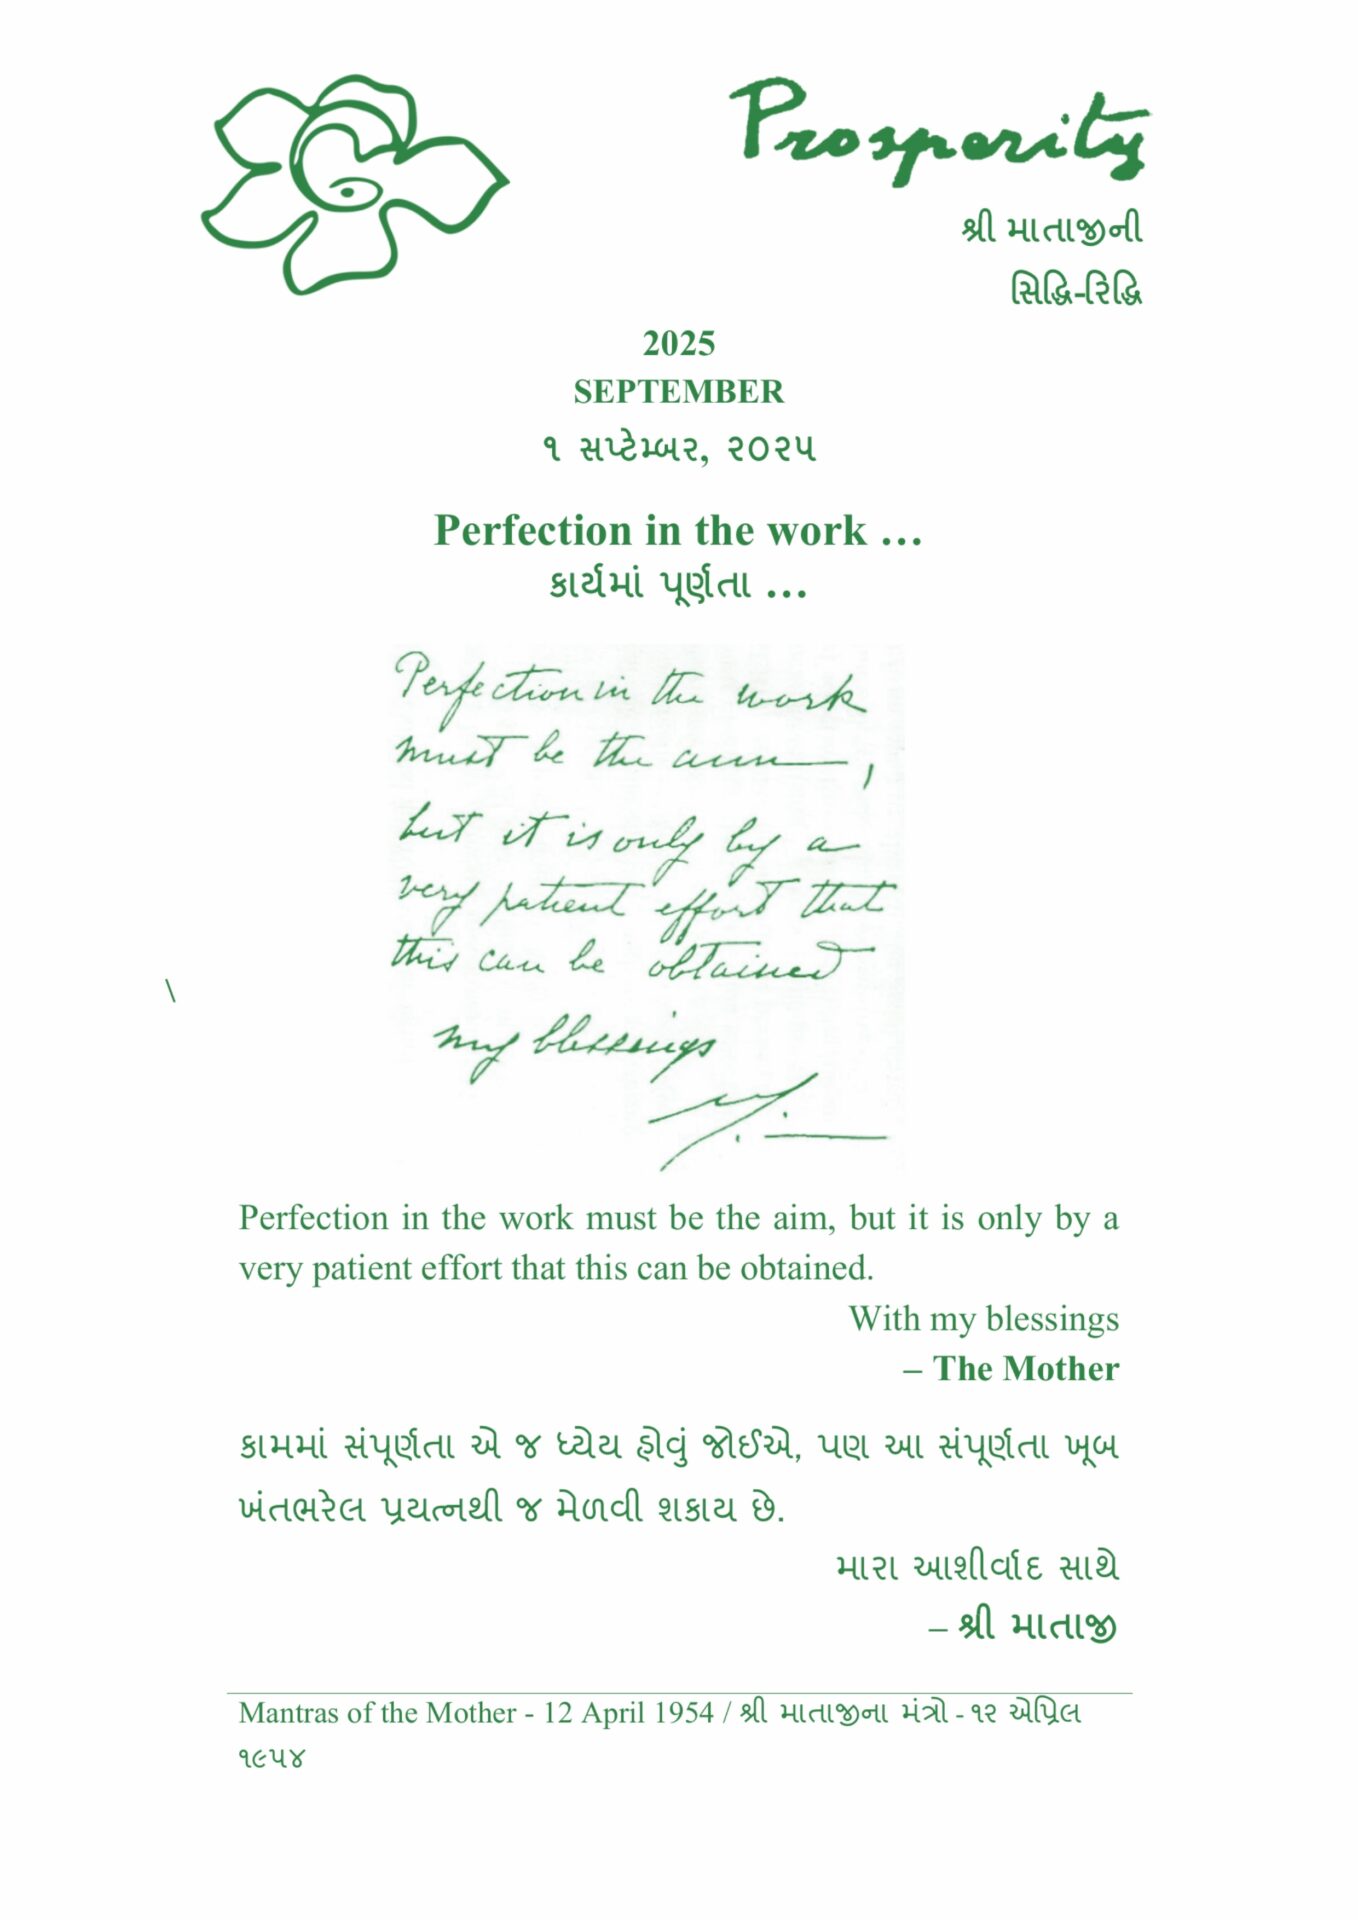 Prosperity
શ્રી માતાજીની
સિદ્ધિ-રિદ્ધિ
2025
SEPTEMBER
૧ સપ્ટેમ્બર, ૨૦૨૫
Perfection in the work …
કાર્યમાં પૂર્ણતા …
Perfection in the work
must be the aim,
but it is only by a
very patient effort that
this can be obtained
my blessings
\
Perfection in the work must be the aim, but it is only by a
very patient effort that this can be obtained.
With my blessings
– The Mother
કામમાં સંપૂર્ણતા એ જ ધ્યેય હોવું જોઈએ, પણ આ સંપૂર્ણતા ખૂબ
ખંતભરેલ પ્રયત્નથી જ મેળવી શકાય છે.
મારા આશીર્વાદ સાથે
– શ્રી માતાજી
Mantras of the Mother - 12 April 1954 / શ્રી માતાજીના મંત્રો - ૧૨ એપ્રિલ
૧૯૫૪